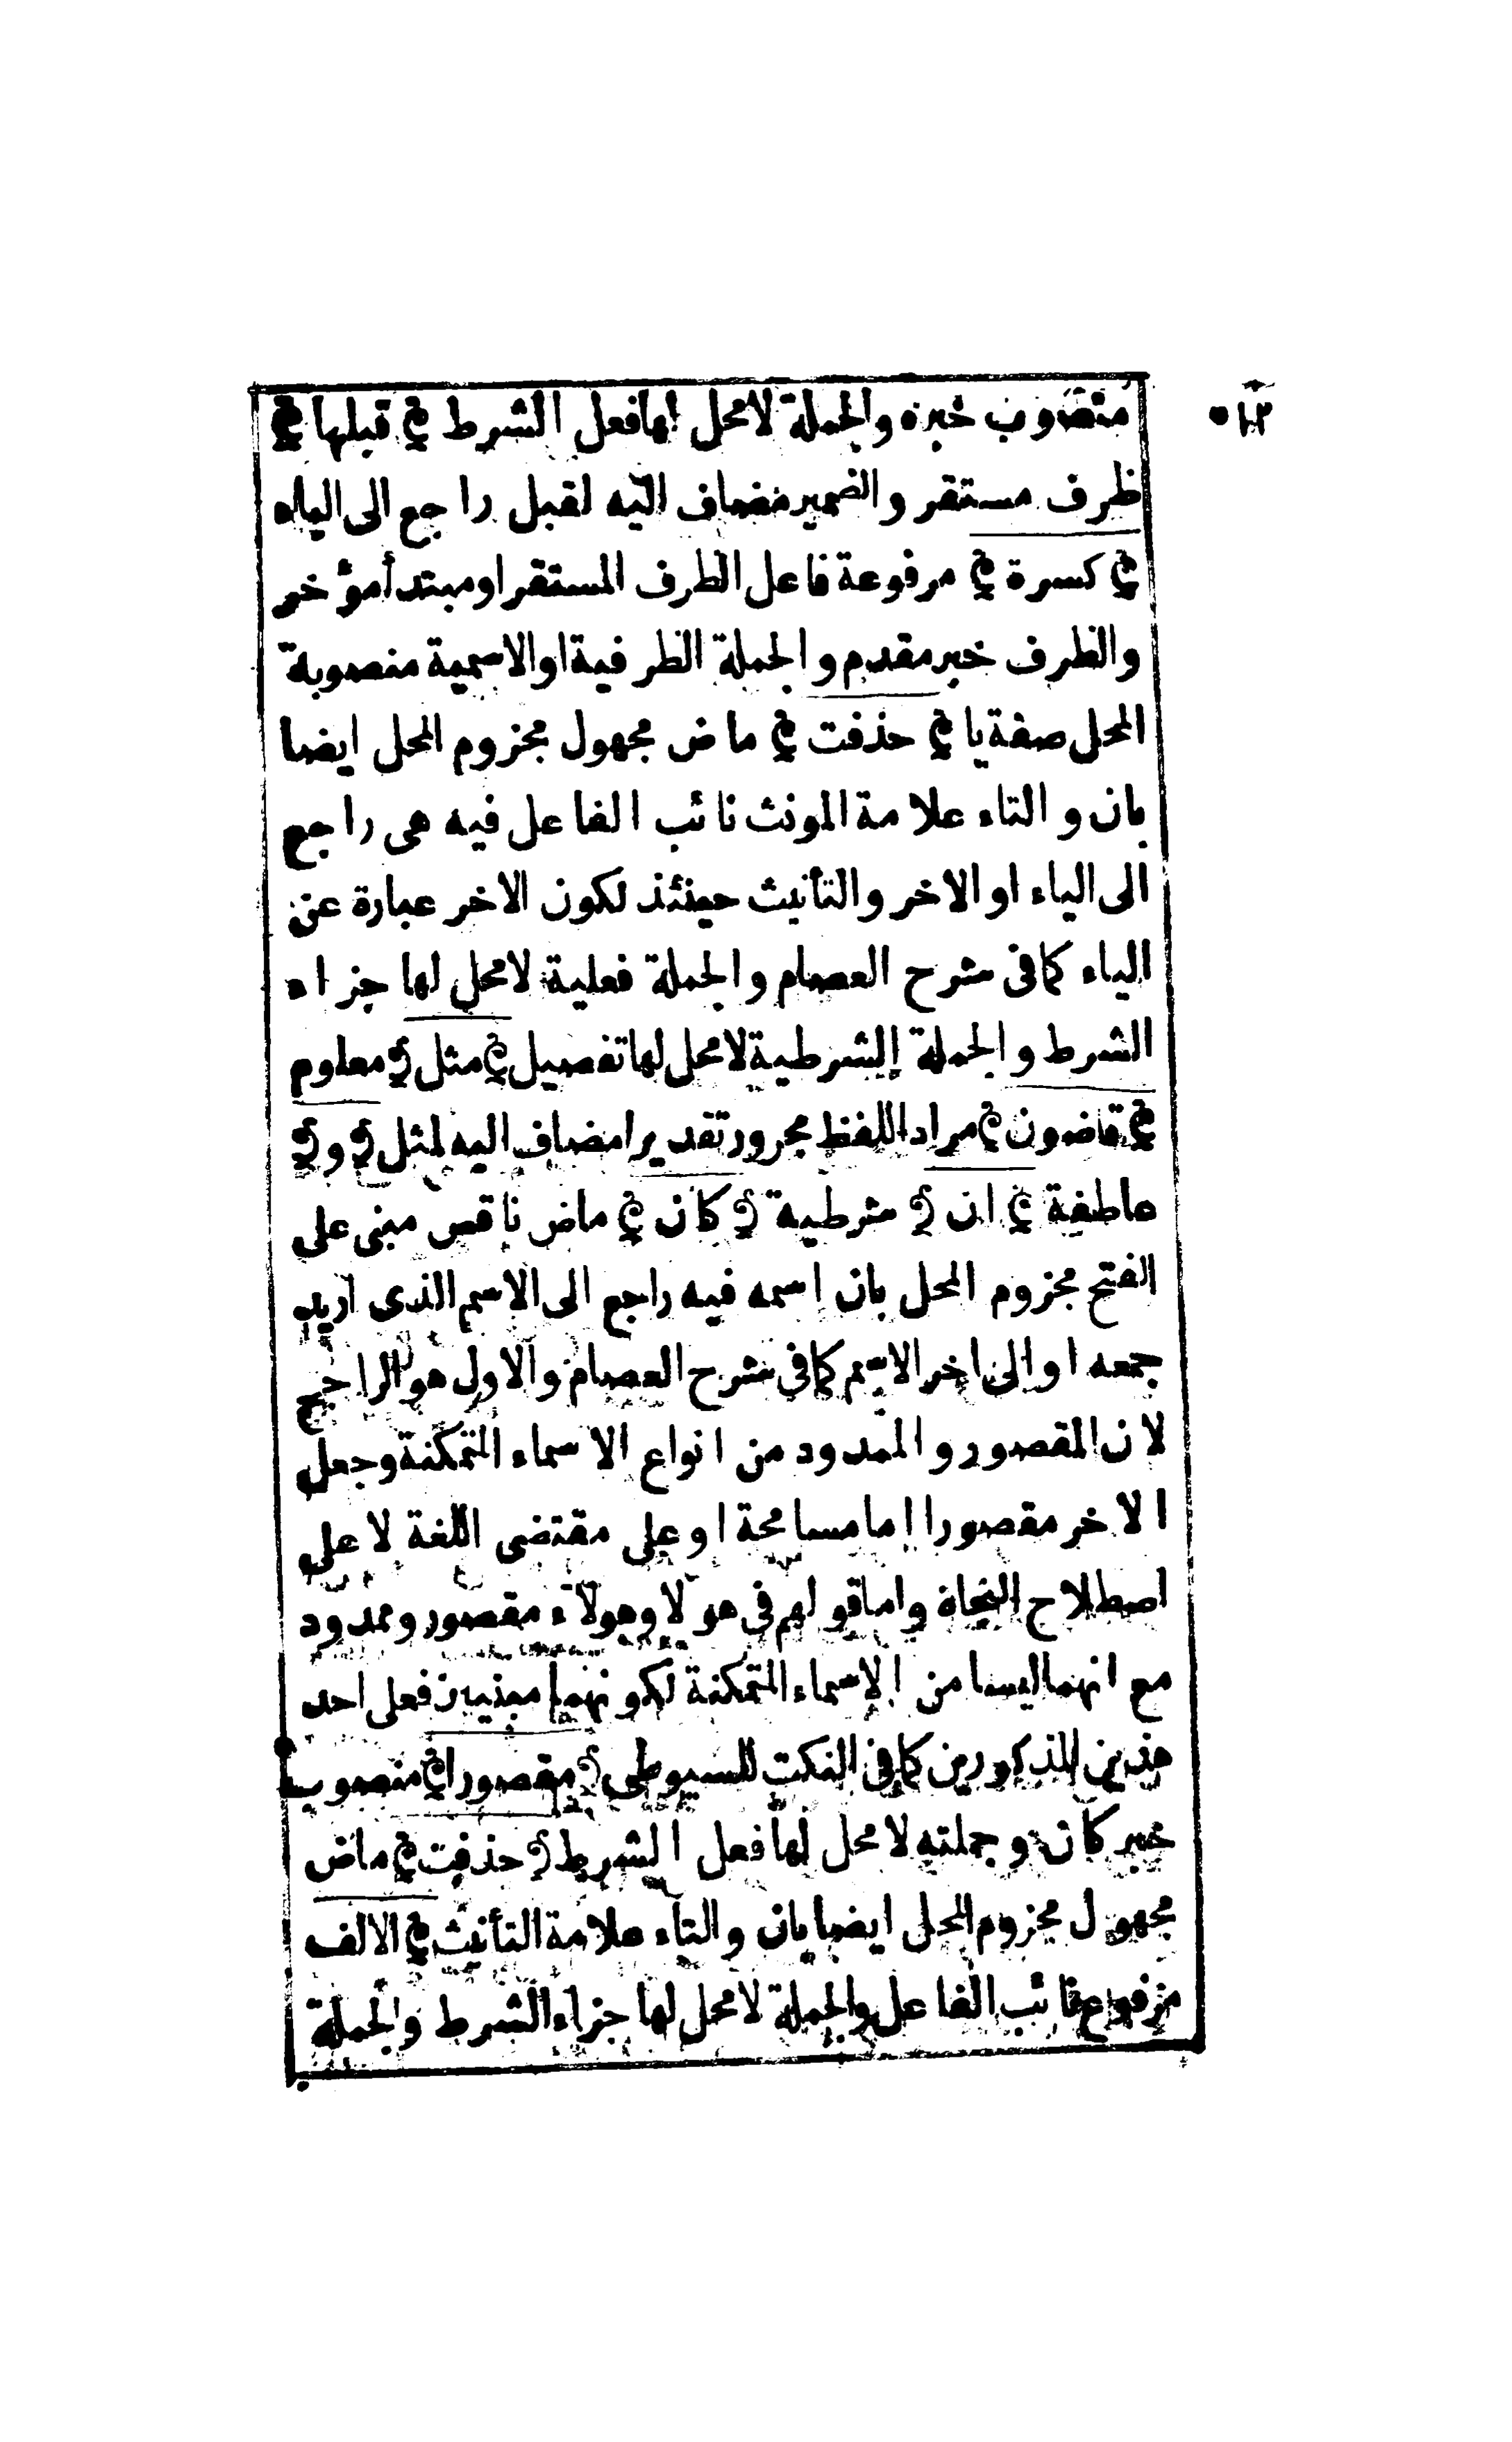 منصوب خبره والجملة لا محل لها فعل الشرط في قبلها في
ظرف مستقر والضمير مضاف اليه لقبل راجع الى الياء
في كسرة في مرفوعة فاعل الظرف المستقر او مبتدأ مؤخر
والظرف خبر مقدم والجملة الظرفية او الاسمية منصوبة
المحل صفة يا في حذفت في ماض مجهول مجزوم المحل ايضا
بان والتاء علامة المونث نائب الفاعل فيه هى راجع
الى الياء او الاخر والتأنيث حينئذ لكون الاخر عبارة عن
الياء كما فى شرح العصام والجملة فعلية لا محل لها جزاء
الشرط والجملة الشرطية لا محل لها تفصيل في مثل في معلوم
في قاضون في مراد اللفظ مجرور تقديرا مضاف اليه لمثل في و في
عاطفة في ان في شرطية في كان في ماض ناقص مبنى على
الفتح مجزوم المحل بان اسمه فيه راجع الى الاسم الذى اريد
جمعه او الى اخر الاسم كما فى شرح العصام والاول هو الراجح
لان المقصور والممدود من انواع الاسماء المتمكنة وجعل
الاخر مقصورا اما مسامحة او على مقتضى اللغة لا على
اصطلاح النحاة واما قولهم فى هولا وهولآء مقصور وممدود
مع انهما ليسا من الاسماء المتمكنة لكونهما مبنيين فعلى احد
هذين المذكورين كما فى النكت للسيوطى في مقصورا في منصوب
خبر كان وجملته لا محل لها فعل الشرط في حذفت في ماض
مجهول مجزوم المحل ايضا بان والتاء علامة التأنيث في الالف
مرفوع نائب الفاعل والجملة لا محل لها جزاء الشرط والجملة